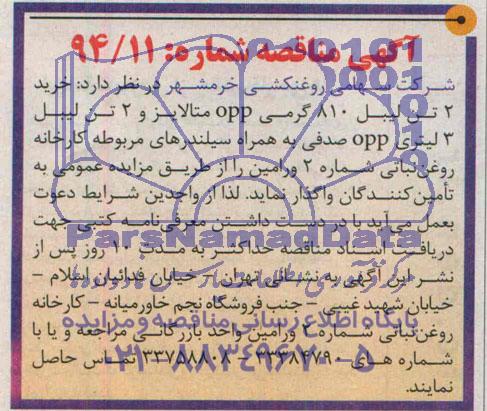 آگهی مناقصه شماره: ۹۴/۱۱
شرکت سهامی روغنکشی خرمشهر در نظر دارد: خرید
۲ تن لیبل ۸۱۰ گرمی opp متالایز و ۲ تن لیبل
۳ لیتری opp صدفی به همراه سیلندرهای مربوطه کارخانه
روغن نباتی شماره ۲ ورامین را از طریق مزایده عمومی به
تأمین‌کنندگان واگذار نماید. لذا از واجدین شرایط دعوت
بعمل می‌آید با در دست داشتن معرفی‌نامه کتبی جهت
ParsNamadData
دریافت اسناد مناقصه حداکثر به مدت ۱۰ روز پس از
نشر این آگهی به نشانی تهران - خیابان فدائیان اسلام -
خیابان شهید غیبی - جنب فروشگاه نجم خاورمیانه - کارخانه
پایگاه اطلاع رسانی مناقصه و مزایده
روغن نباتی شماره ۲ ورامین واحد بازرگانی مراجعه و یا با
۰۲۱-۸۸۳۴۹۶۷۰-۵
شماره های ۳۳۳۸۴۷۹۰ - ۳۳۷۵۸۸۰۸ تماس حاصل
نمایند.